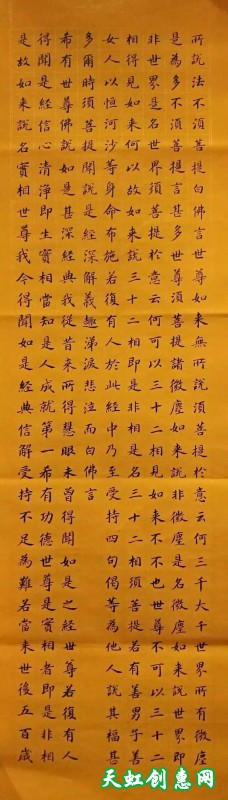 所說法不須菩提白佛言世尊如來無所說須菩提於意云何三千大千世界所有微塵
是為多不須菩提言甚多世尊須菩提諸微塵如來說非微塵是名微塵如來說世界即
非世界是名世界須菩提於意云何可以三十二相見如來不不也世尊不可以三十二
相得見如來何以故如來說三十二相即是非相是名三十二相須菩提若有善男子善
女人以恒河沙等身命布施若復有人於此經中乃至受持四句偈等為他人說其福甚
多爾時須菩提聞說是經深解義趣涕淚悲泣而白佛言
希有世尊佛說如是甚深經典我從昔來所得慧眼未曾得聞如是之經世尊若復有人
得聞是經信心清淨即生實相當知是人成就第一希有功德世尊是實相者即是非相
是故如來說名實相世尊我今得聞如是經典信解受持不足為難若當來世後五百歲
天虹创惠网